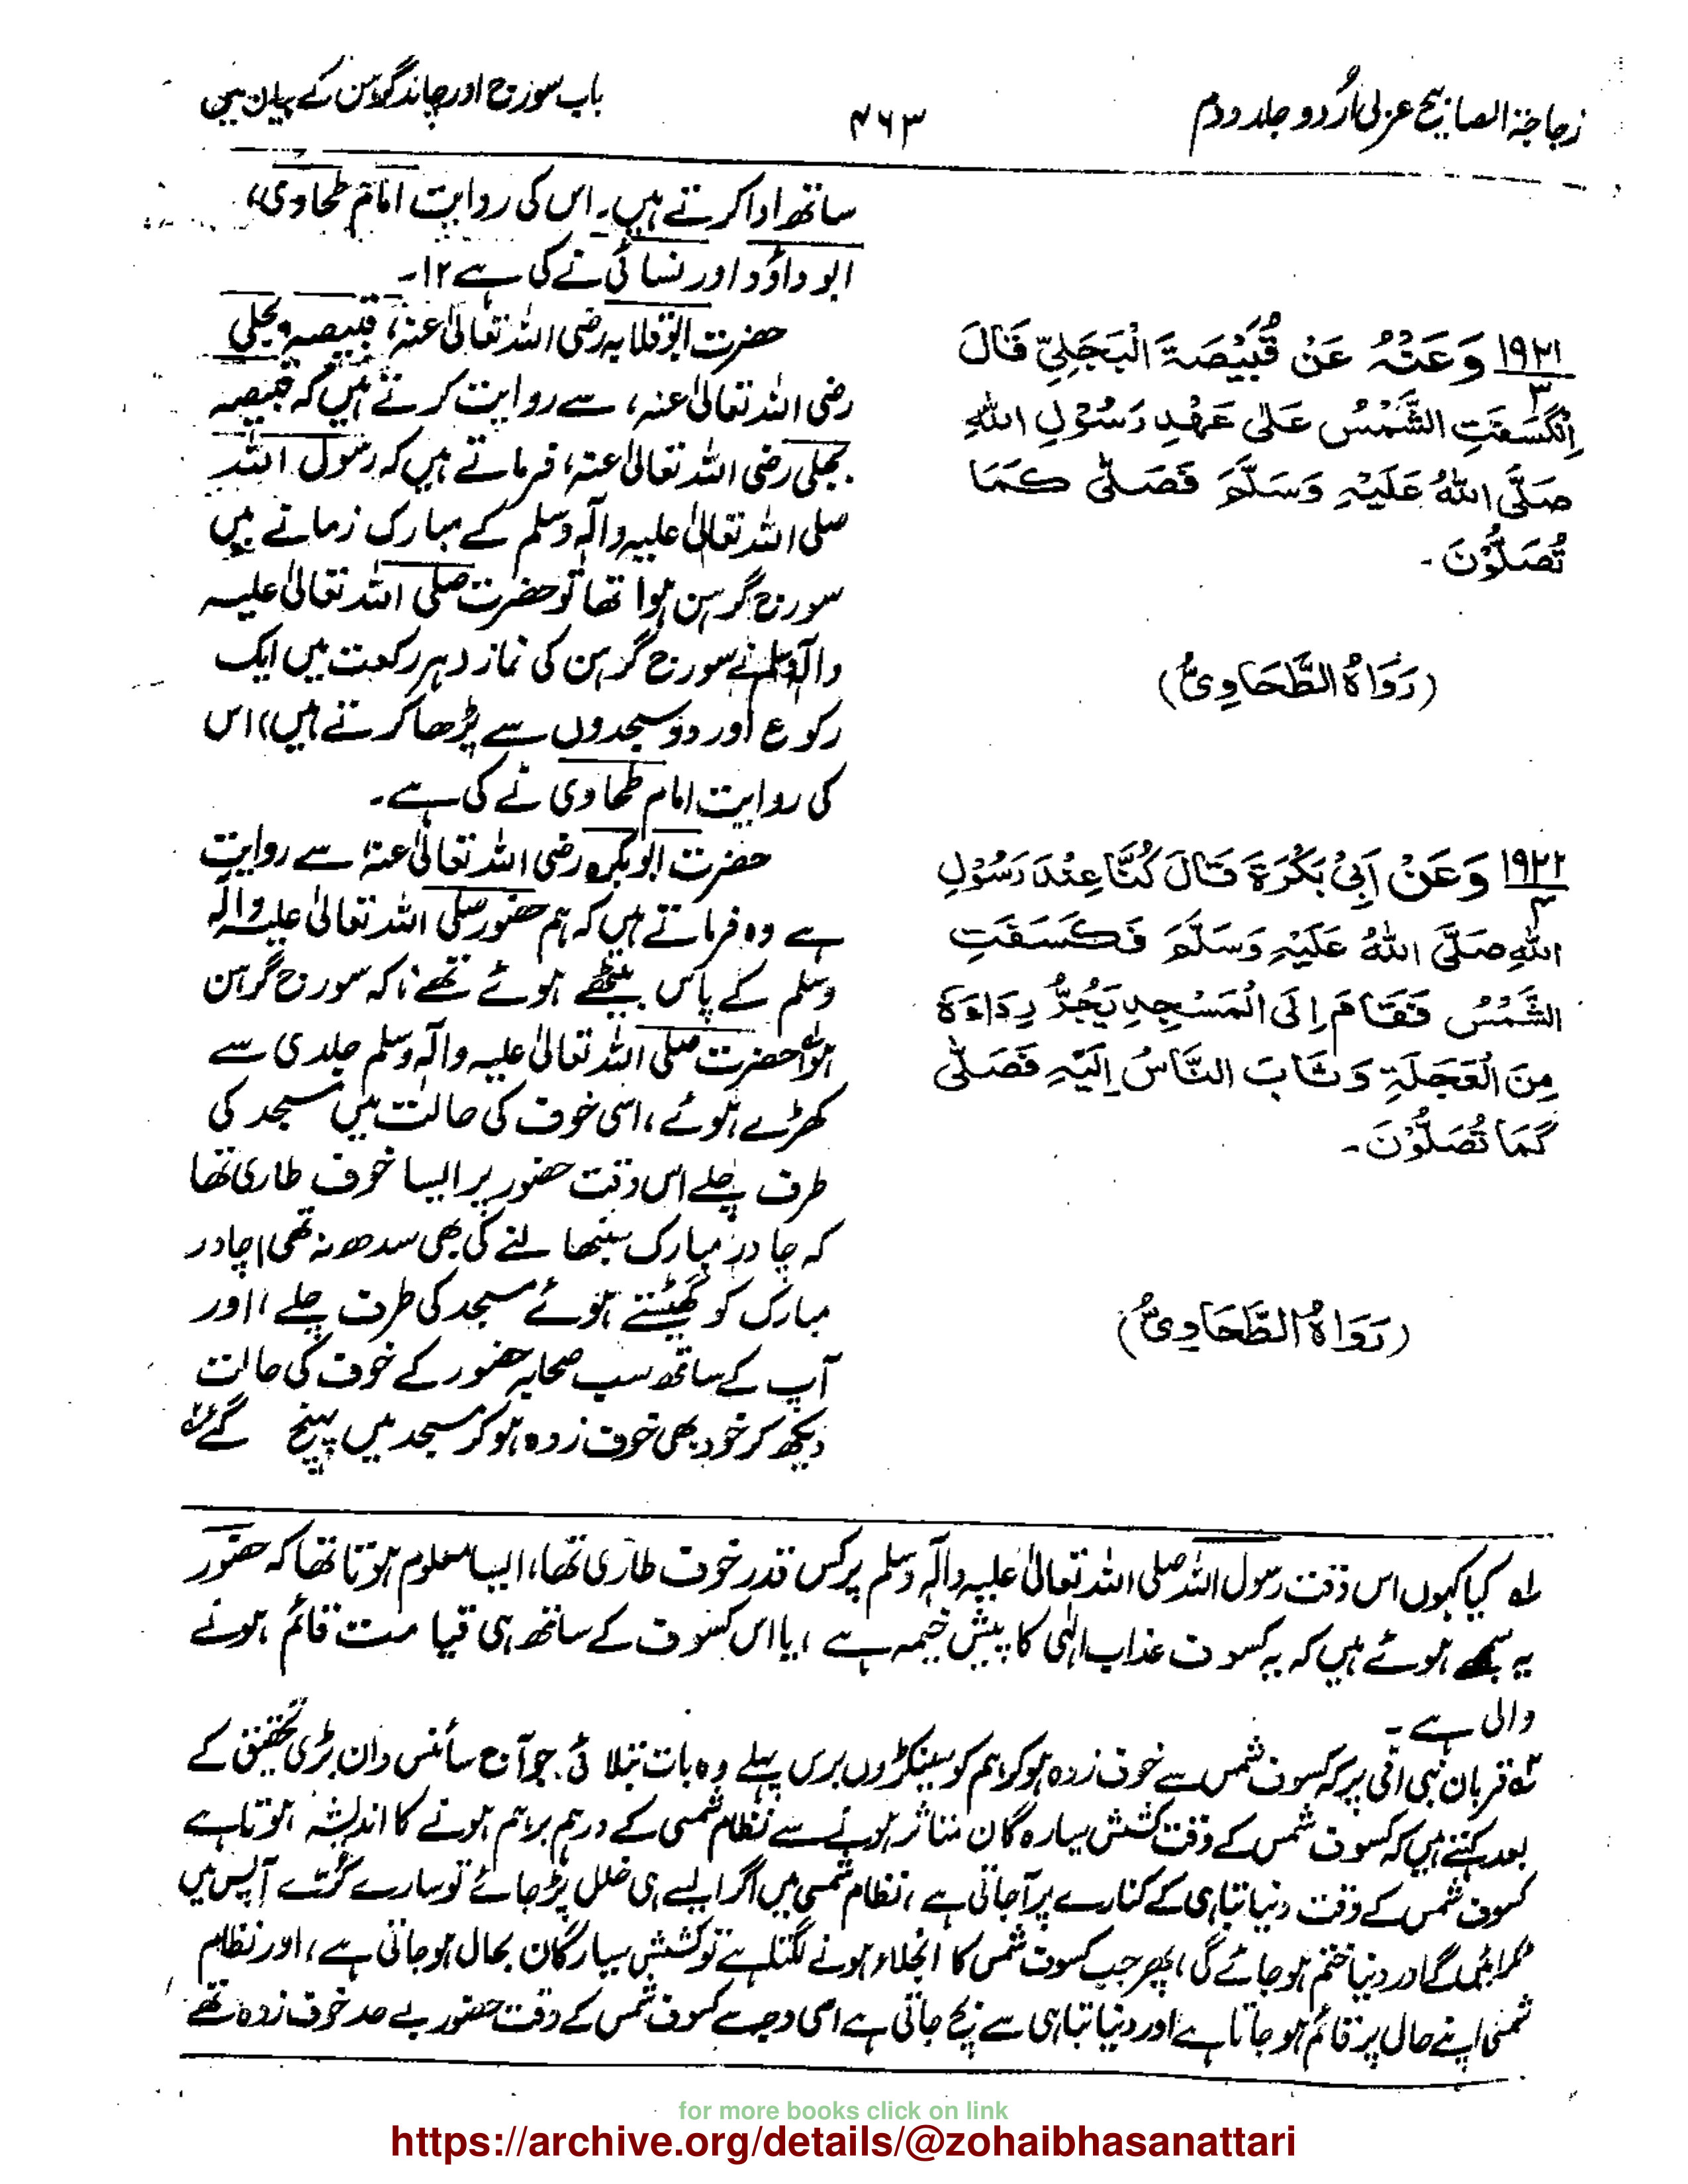 زجاجۃ المصابیح عربی اُردو جلد دوم
۴۶۳
باب سورج اور چاند گہن کے بیان میں
ساتھ ادا کرتے ہیں۔ اس کی روایت امام طحاوی،
ابو داؤد اور نسائی نے کی ہے ۱۲۔
۱۹۲۱ وَعَنْهُ عَنْ قُبَيْصَةَ الْبَجَلِيِّ قَالَ
۳
اِنْكَسَفَتِ الشَّمْسُ عَلٰى عَهْدِ رَسُوْلِ اللهِ
صَلَّى اللهُ عَلَيْهِ وَسَلَّمَ فَصَلّٰى كَمَا
تُصَلُّوْنَ۔
(رَوَاهُ الطَّحَاوِىُّ)
حضرت ابو قلابہ رضی اللہ تعالیٰ عنہ، قبیصہ بجلی
رضی اللہ تعالیٰ عنہ، سے روایت کرتے ہیں کہ قبیصہ
بجلی رضی اللہ تعالیٰ عنہ، فرماتے ہیں کہ رسول اللہ
صلی اللہ تعالیٰ علیہ وآلہٖ وسلم کے مبارک زمانے میں
سورج گرہن ہوا تھا تو حضرت صلی اللہ تعالیٰ علیہ
وآلہٖ وسلم نے سورج گرہن کی نماز دہر رکعت میں ایک
رکوع اور دو سجدوں سے پڑھا کرتے ہیں) اس
کی روایت امام طحاوی نے کی ہے۔
۱۹۲۲ وَعَنْ اَبِىْ بَكْرَةَ قَالَ كُنَّا عِنْدَ رَسُوْلِ
۴
اللهِ صَلَّى اللهُ عَلَيْهِ وَسَلَّمَ فَكَسَفَتِ
الشَّمْسُ فَقَامَ اِلَى الْمَسْجِدِ يَجُرُّ رِدَاءَهٗ
مِنَ الْعَجَلَةِ وَثَابَ النَّاسُ اِلَيْهِ فَصَلّٰى
كَمَا تُصَلُّوْنَ۔
(رَوَاهُ الطَّحَاوِىُّ)
حضرت ابوبکرہ رضی اللہ تعالیٰ عنہ، سے روایت
ہے وہ فرماتے ہیں کہ ہم حضور صلی اللہ تعالیٰ علیہ وآلہٖ
وسلم کے پاس بیٹھے ہوئے تھے کہ سورج گرہن
ہوا حضرت صلی اللہ تعالیٰ علیہ وآلہٖ وسلم جلدی سے
کھڑے ہوئے، اسی خوف کی حالت میں مسجد کی
طرف چلے اس وقت حضور پر ایسا خوف طاری تھا
کہ چادر مبارک سنبھالنے کی بھی سدھ نہ تھی، چادر
مبارک کو گھیٹتے ہوئے مسجد کی طرف چلے، اور
آپ کے ساتھ سب صحابہ حضور کے خوف کی حالت
دیکھ کر خود بھی خوف زدہ ہو کر مسجد میں پہنچ گئے
لہ کیا کہوں اس وقت رسول اللہ صلی اللہ تعالیٰ علیہ وآلہٖ وسلم پر کس قدر خوف طاری تھا، ایسا معلوم ہوتا تھا کہ حضور
یہ سمجھے ہوئے ہیں کہ یہ کسوف عذاب الٰہی کا پیش خیمہ ہے، یا اس کسوف کے ساتھ ہی قیامت قائم ہونے
والی ہے۔
قربان نبی امی پر کہ کسوف شمس سے خوف زدہ ہو کر ہم کو سینکڑوں برس پہلے وہ بات بتلائی جو آج سائنس دان بڑی تحقیق کے
بعد کہتے ہیں کہ کسوف شمس کے وقت کشش سیارہ گان متاثر ہونے سے نظام شمسی کے درہم برہم ہونے کا اندیشہ ہوتا ہے
کسوف شمس کے وقت دنیا تباہی کے کنارے پر آجاتی ہے، نظام شمسی میں اگر ایسے ہی خلل پڑجائے تو سارے کرّے آپس میں
ٹکرا جائیں گے اور دنیا ختم ہو جائے گی، پھر جب کسوف شمس کا انجلاء ہونے لگتا ہے تو کشش سیارگان بحال ہو جاتی ہے، اور نظام
شمسی اپنے حال پر قائم ہو جاتا ہے اور دنیا تباہی سے بچ جاتی ہے اسی وجہ سے کسوف شمس کے وقت حضور بے حد خوف زدہ تھے
for more books click on link
https://archive.org/details/@zohaibhasanattari